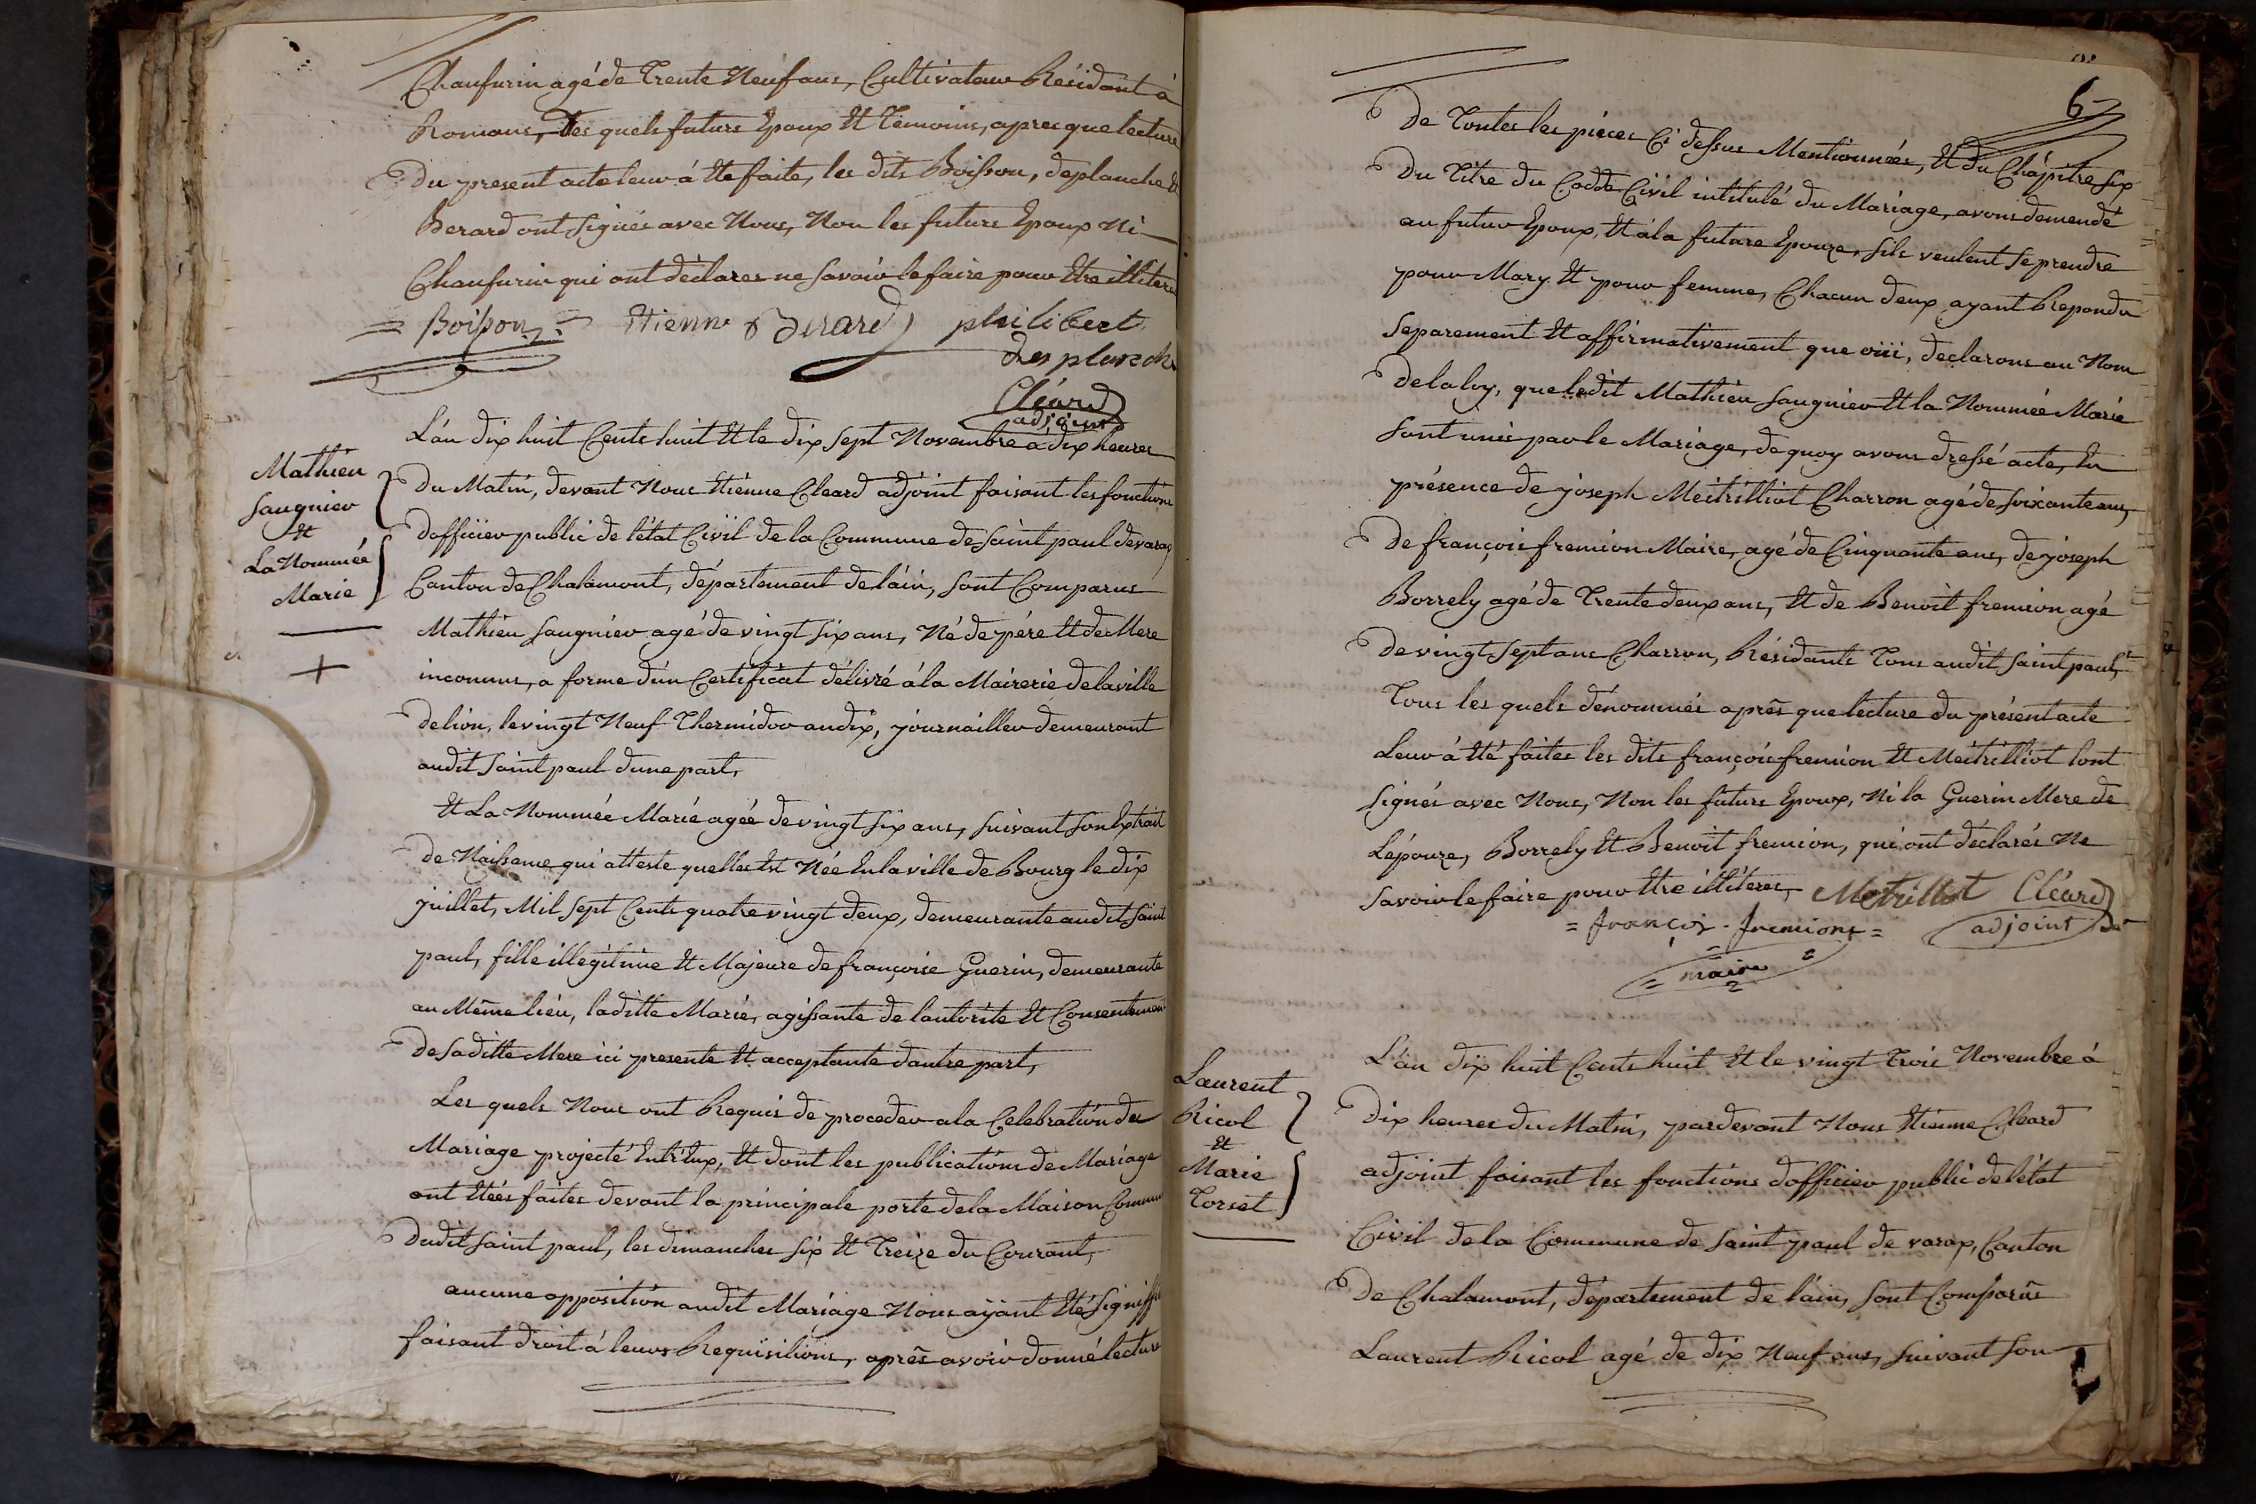 Chanfurin agé de Trente Neuf ans, Cultivateur Résidant à
Romans, Les quels futurs Epoux Et Temoins, apres que lecture
Du present acte leur à Ete faite, les dits Boisson, deplanche Et
Berard ont signés avec Nous, Non les futurs Epoux Ni
Chanfurin qui ont déclares ne savoir le faire pour Etre illiteres
= Boisson = Etienne Berard philibert
desplanche
Cléard
adjoint
Mathieu
Saugnier
Et
La Nommée
Marie
+
L'an dix huit Cents huit Et le dix sept Novembre à dix heures
Du Matin, devant Nous Etienne Cleard adjoint faisant les fonctions
D'officier public de l'état Civil de la Commune de Saint paul de varax
Canton de Chalamont, département de l'ain, sont Comparus
Mathieu Saugnier agé de vingt six ans, Né de pére Et de Mere
inconnus, a forme d'un Certificat délivré à la Mairerie de la ville
de lion, le vingt Neuf Thermidor an dix, journaillier demeurant
audit Saint paul d'une part,
Et La Nommée Marie agée de vingt six ans, suivant son Extrait
de Naissance qui atteste quelles Est Née En la ville de Bourg le dix
juillet, Mil sept Cents quatre vingt deux, demeurante audit Saint
paul, fille illegitime Et Majeure de françoise Guerin, demeurante
au Même lieu, laditte Marie, agissante de l'autorité Et Consentement
de sa ditte Mere ici presente Et acceptante d'autre part,
Les quels Nous ont Requis de proceder a la Celebration du
Mariage projecté Entr'Eux, Et dont les publications de Mariage
ont Etées faites devant la principale porte de la Maison Commune
dudit Saint paul, les dimanches six Et Treize du Courant,
aucune opposition audit Mariage Nous ayant Eté signiffiée
faisant droit à leurs Requisitions, aprés avoir donné lecture
6
De Toutes les pieces Ci dessus Mentionnées, Et du Chapitre six
Du Titre du Codde Civil intitulé du Mariage, avons demendé
au futur Epoux, Et à la future Epouze, s'ils veulent se prendre
pour Mary Et pour femme, Chacun d'eux ayant Repondu
separement Et affirmativement que oüi, declarons au Nom
de la loy, que ledit Mathieu Saugnier Et la Nommée Marie
sont unis par le Mariage, de quoy avons dressé acte, En
présence de joseph Meitrilliot Charron agé de soixante ans,
De françois fremion Maire, agé de Cinquante ans, de joseph
Borrely agé de Trente deux ans, Et de Benoit fremion agé
De vingt sept ans Charron, Résidants Tous audit Saint paul,
Tous les quels dénommés aprés que lecture du présent acte
Leur à Eté faites les dits françois fremion Et Meitrilliot l'ont
signés avec Nous, Non les futurs Epoux, Ni la Guerin Mere de
L'épouze, Borrely Et Benoit fremion, qui ont déclarés Ne
savoir le faire pour Etre illiteres, Metrilliot Cléard
= françois fremiont = adjoint
= maire =
Laurent
Ricol
Et
Marie
Corset
L'an dix huit Cents huit Et le vingt Trois Novembre à
Dix heures du Matin, pardevant Nous Etienne Cleard
adjoint faisant les fonctions d'officier public de l'état
Civil de la Commune de Saint paul de varax, Canton
De Chalamont, département de l'ain, sont Comparus
Laurent Ricol agé de dix Neuf ans, suivant son